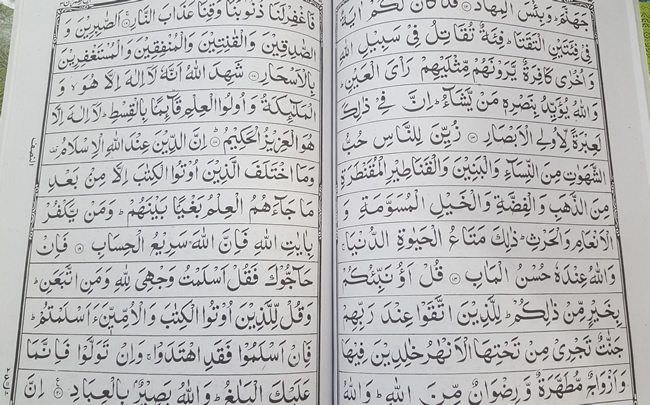 جَهَنَّمَ ؕ وَبِئْسَ الْمِهَادُ ﴿۱۲﴾ قَدْ كَانَ لَكُمْ اٰيَةٌ
فِىْ فِئَتَيْنِ الْتَقَتَا ؕ فِئَةٌ تُقَاتِلُ فِىْ سَبِيْلِ اللّٰهِ
وَاُخْرٰى كَافِرَةٌ يَّرَوْنَهُمْ مِّثْلَيْهِمْ رَاْىَ الْعَيْنِ ؕ
وَاللّٰهُ يُؤَيِّدُ بِنَصْرِهٖ مَنْ يَّشَآءُ ؕ اِنَّ فِىْ ذٰلِكَ
لَعِبْرَةً لِّاُولِى الْاَبْصَارِ ﴿۱۳﴾ زُيِّنَ لِلنَّاسِ حُبُّ
الشَّهَوٰتِ مِنَ النِّسَآءِ وَالْبَنِيْنَ وَالْقَنَاطِيْرِ الْمُقَنْطَرَةِ
مِنَ الذَّهَبِ وَالْفِضَّةِ وَالْخَيْلِ الْمُسَوَّمَةِ وَ
الْاَنْعَامِ وَالْحَرْثِ ؕ ذٰلِكَ مَتَاعُ الْحَيٰوةِ الدُّنْيَا ۚ
وَاللّٰهُ عِنْدَهٗ حُسْنُ الْمَاٰبِ ﴿۱۴﴾ قُلْ اَؤُنَبِّئُكُمْ
بِخَيْرٍ مِّنْ ذٰلِكُمْ ؕ لِلَّذِيْنَ اتَّقَوْا عِنْدَ رَبِّهِمْ
جَنّٰتٌ تَجْرِىْ مِنْ تَحْتِهَا الْاَنْهٰرُ خٰلِدِيْنَ فِيْهَا
وَاَزْوَاجٌ مُّطَهَّرَةٌ وَّرِضْوَانٌ مِّنَ اللّٰهِ ؕ وَاللّٰهُ
فَاغْفِرْ لَنَا ذُنُوْبَنَا وَقِنَا عَذَابَ النَّارِ ﴿۱۶﴾ اَلصّٰبِرِيْنَ وَ
الصّٰدِقِيْنَ وَالْقٰنِتِيْنَ وَالْمُنْفِقِيْنَ وَالْمُسْتَغْفِرِيْنَ
بِالْاَسْحَارِ ﴿۱۷﴾ شَهِدَ اللّٰهُ اَنَّهٗ لَاۤ اِلٰهَ اِلَّا هُوَ ۙ وَ
الْمَلٰٓئِكَةُ وَاُولُوا الْعِلْمِ قَآئِمًۢا بِالْقِسْطِ ؕ لَاۤ اِلٰهَ اِلَّا
هُوَ الْعَزِيْزُ الْحَكِيْمُ ﴿۱۸﴾ اِنَّ الدِّيْنَ عِنْدَ اللّٰهِ الْاِسْلَامُ
وَمَا اخْتَلَفَ الَّذِيْنَ اُوْتُوا الْكِتٰبَ اِلَّا مِنْۢ بَعْدِ
مَا جَآءَهُمُ الْعِلْمُ بَغْيًاۢ بَيْنَهُمْ ؕ وَمَنْ يَّكْفُرْ
بِاٰيٰتِ اللّٰهِ فَاِنَّ اللّٰهَ سَرِيْعُ الْحِسَابِ ﴿۱۹﴾ فَاِنْ
حَآجُّوْكَ فَقُلْ اَسْلَمْتُ وَجْهِىَ لِلّٰهِ وَمَنِ اتَّبَعَنِ ؕ
وَقُلْ لِّلَّذِيْنَ اُوْتُوا الْكِتٰبَ وَالْاُمِّيّٖنَ ءَاَسْلَمْتُمْ ؕ
فَاِنْ اَسْلَمُوْا فَقَدِ اهْتَدَوْا ۚ وَاِنْ تَوَلَّوْا فَاِنَّمَا
عَلَيْكَ الْبَلٰغُ ؕ وَاللّٰهُ بَصِيْرٌۢ بِالْعِبَادِ ﴿۲۰﴾ اِنَّ